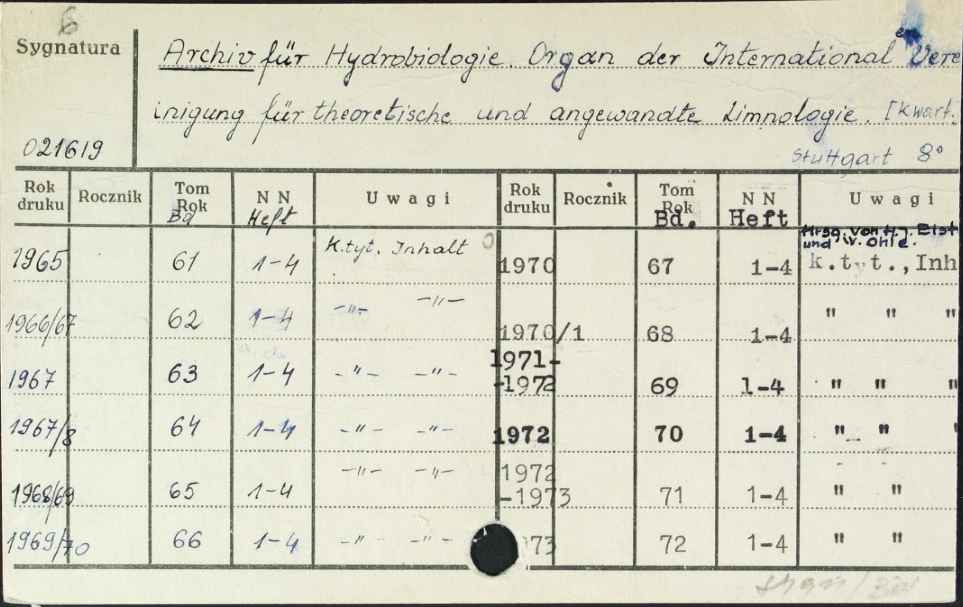 6
Sygnatura
Archiv für Hydrobiologie. Organ der International en Vere
inigung für theoretische und angewandte Limnologie. [Kwart.
021619
Stuttgart 8°
Rok druku Rocznik Tom Rok Bd N N Heft Uwagi Rok druku Rocznik Tom Rok Bd. N N Heft Uwagi
Hrsg. von H.J. Elst
und W. Ohle.
1965 61 1-4 K.tyt. Inhalt 1970 67 1-4 k.tyt., Inh
1966/67 62 1-4 -"- -"- 1970/1 68 1-4 " " "
1967 63 1-4 -"- -"- 1971--1972 69 1-4 " " "
1967/8 64 1-4 -"- -"- 1972 70 1-4 " " "
1968/69 65 1-4 -"- -"- 1972-1973 71 1-4 " "
1969/70 66 1-4 -"- -"- 73 72 1-4 " "